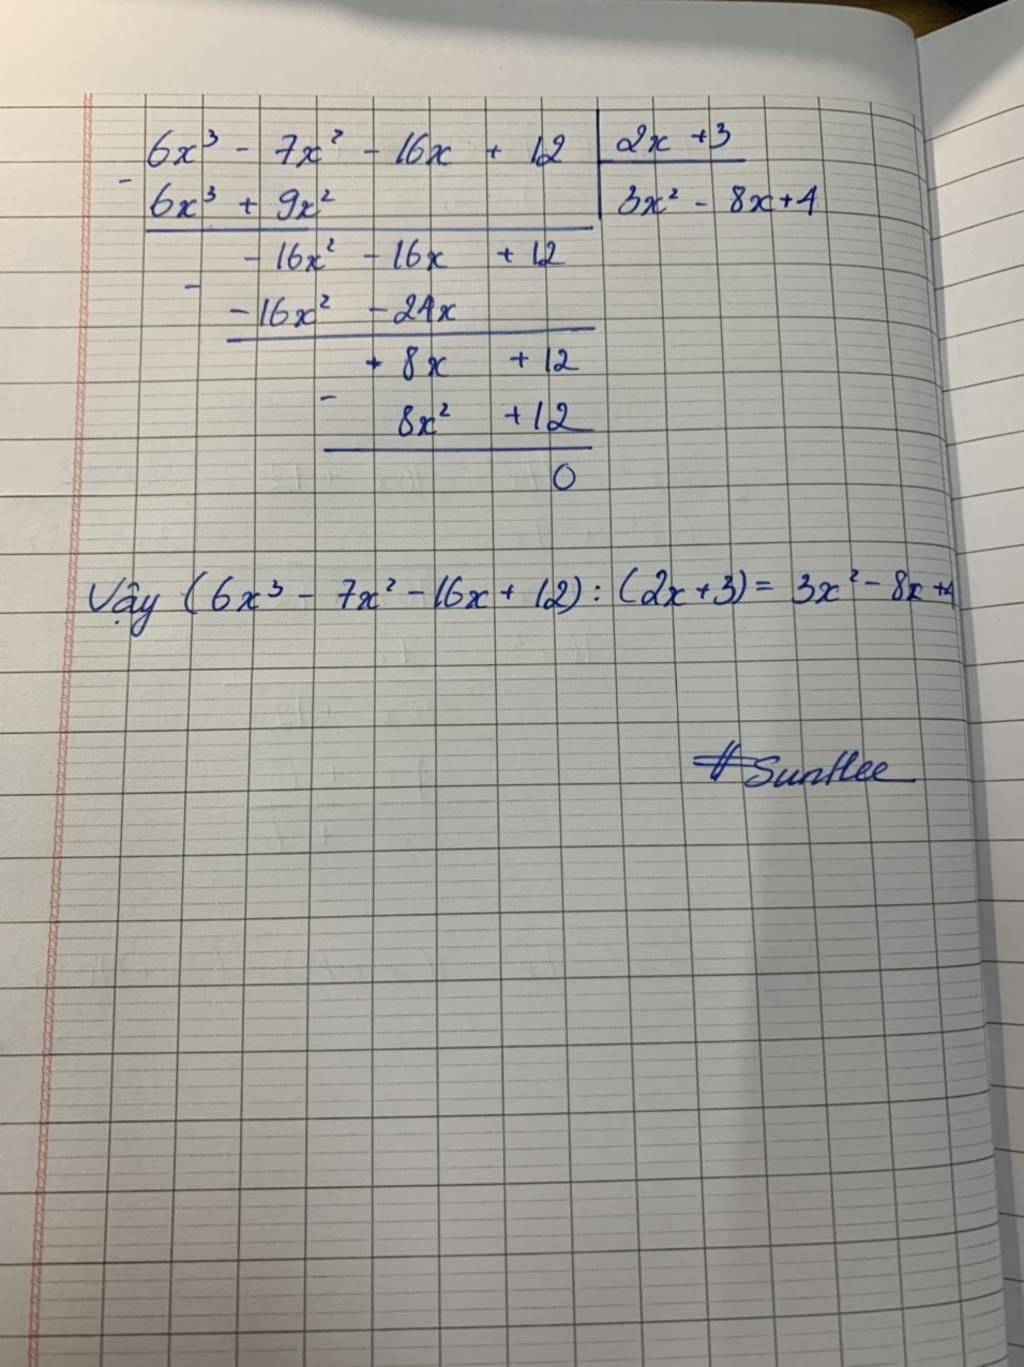 6x³ - 7x² - 16x + 12 | 2x + 3
- 6x³ + 9x² | 3x² - 8x + 4
- 16x² - 16x + 12
- - 16x² - 24x
+ 8x + 12
- 8x² + 12
0
Vậy (6x³ - 7x² - 16x + 12) : (2x + 3) = 3x² - 8x + 4
#SunHee